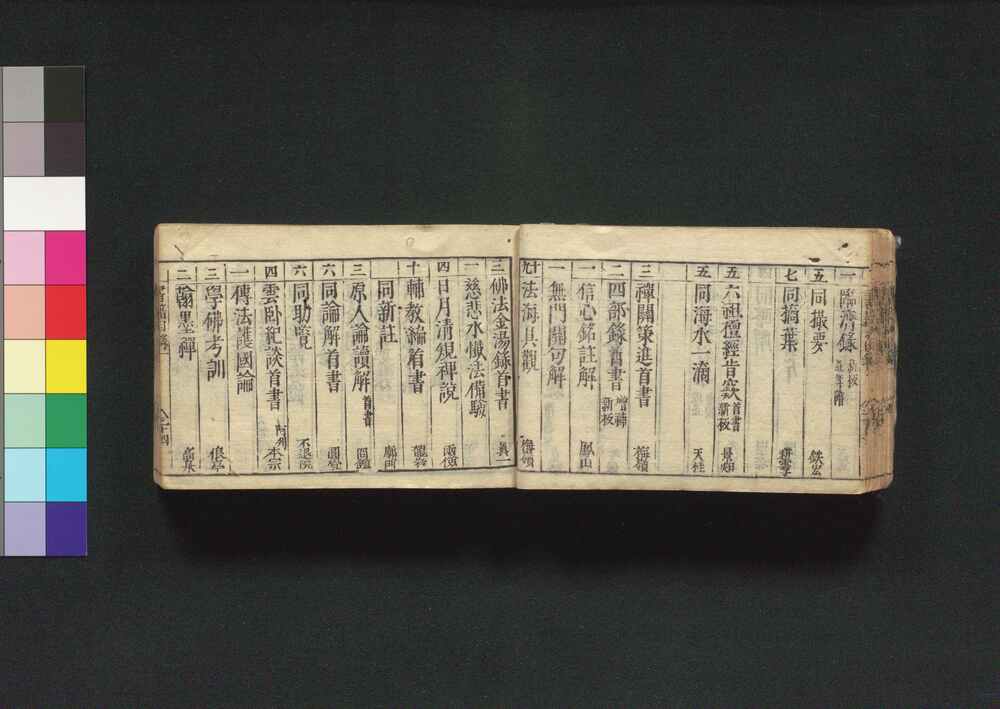 一 臨濟錄 新板
五 同撮要 鉄崖
七 同摘葉
五 六祖壇經肯窾 首書 新板
五 同海水一滴 天桂
三 禪關策進首書 梅嶺
二 四部錄首書 增補 新板
一 信心銘註解 鳳山
一 無門關句解
十九 法海具觀 梅嶺
三 佛法金湯錄首書
一 慈悲水懺法備駿
四 日月清規稗説
十 輔教編首書
同新註
三 原人論讀解 首書
六 同論解首書 圓通
六 同助覽
四 雲卧紀談首書
一 傳法護國論
三 學佛考訓
二 翰墨禪